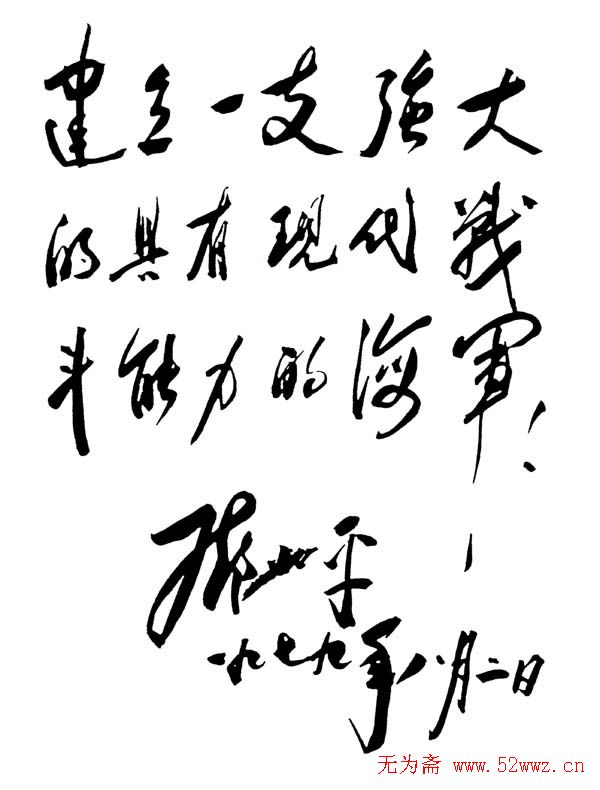 建立一支强大
的具有現代戰
斗能力的海軍！
邓小平
一九七九年八月二日
无为斋 www.52wwz.cn